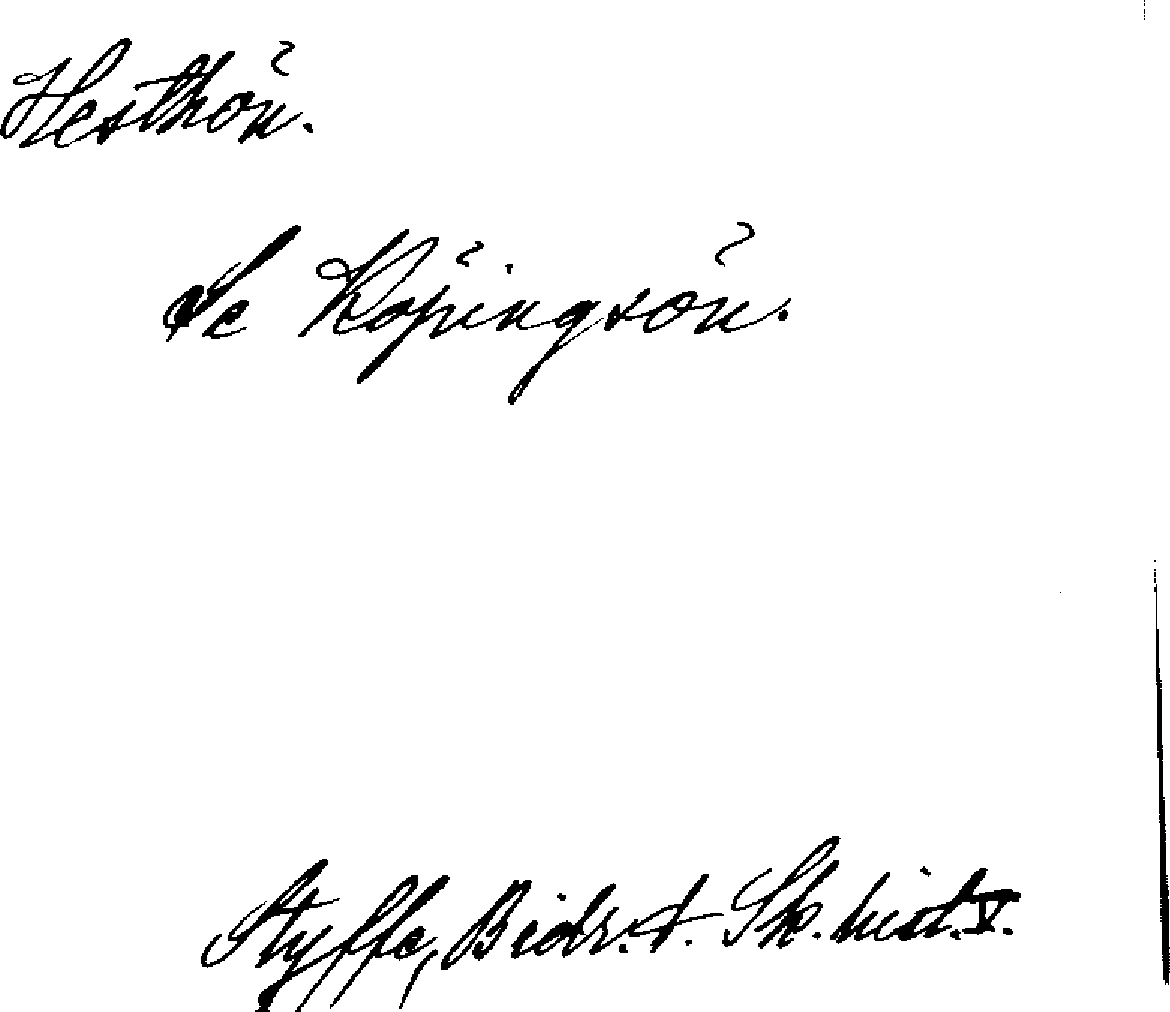 Hesthön.
Se Köpingsön.
Styffe, Bidr. t. Sk. hist. V.